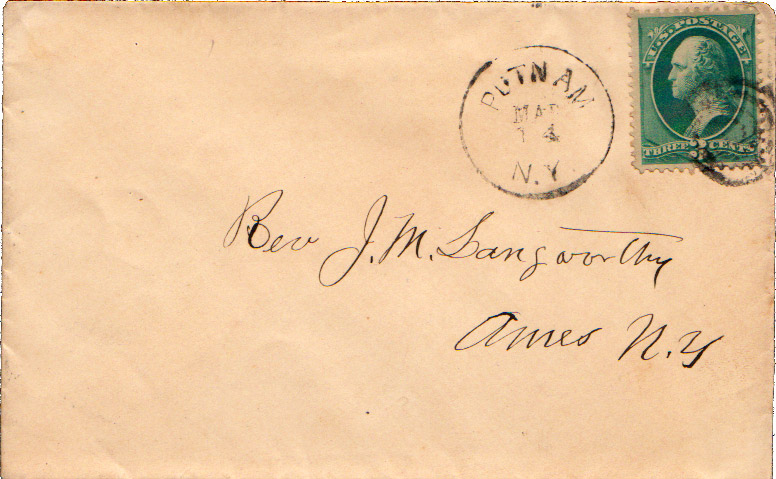 U.S. POSTAGE
THREE 3 CENTS
PUTNAM
MAR
14
N.Y.
Rev J. M. Langworthy
Ames N.Y